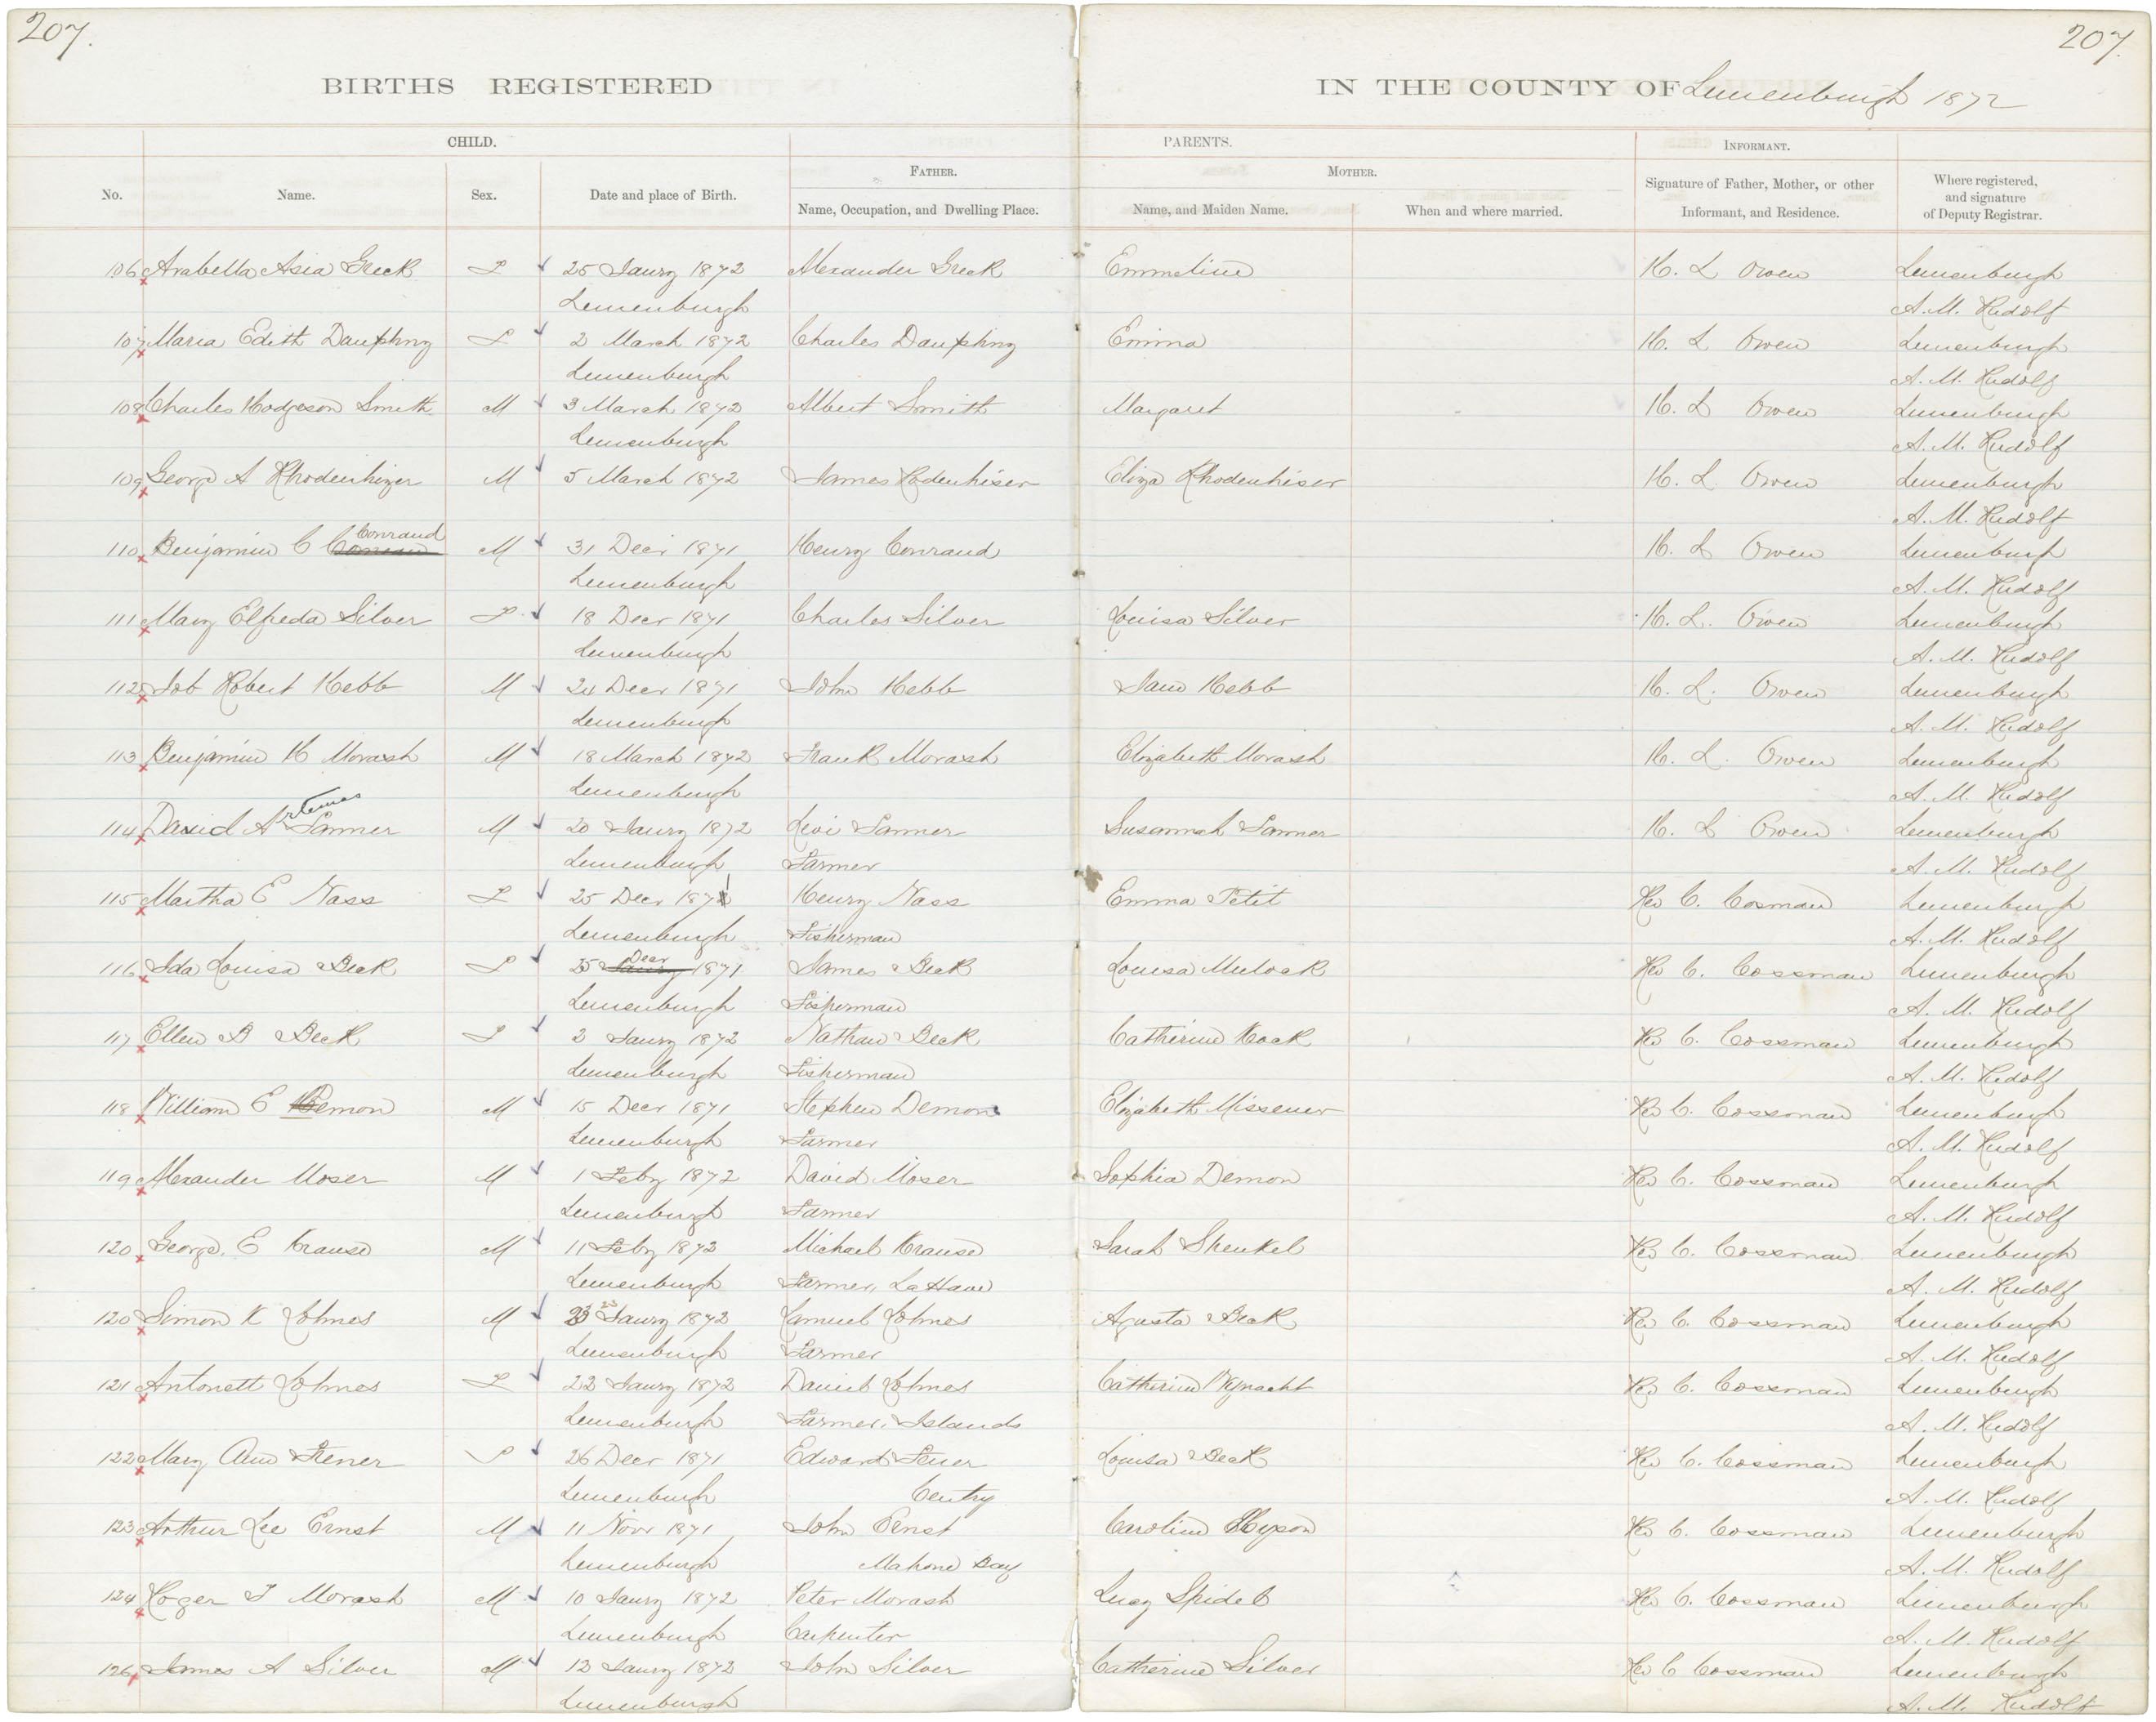 207.
207.
BIRTHS REGISTERED
IN THE COUNTY OF Lunenburgh 1872
CHILD.
PARENTS.
INFORMANT.
No.
Name.
Sex.
Date and place of Birth.
FATHER.
Name, Occupation, and Dwelling Place.
MOTHER.
Name, and Maiden Name.
When and where married.
Signature of Father, Mother, or other
Informant, and Residence.
Where registered,
and signature
of Deputy Registrar.
106 Arabella Asia Greek F 25 Jaury 1872 Alexander Greek Emmeline H. L Owen Lunenburgh
Lunenburgh A. M. Rudolf
107 Maria Edith Dauphny F 2 March 1872 Charles Dauphny Emma H. L Owen Lunenburgh
Lunenburgh A. M. Rudolf
108 Charles Hodgson Smith M 3 March 1872 Albert Smith Margaret H. L Owen Lunenburgh
Lunenburgh A. M. Rudolf
109 George A Rhodenhizer M 5 March 1872 James Rodenhiser Eliza Rhodenhiser H. L. Owen Lunenburgh
A. M. Rudolf
110 Benjamin C Conraud M 31 Decr 1871 Henry Conraud H. L Owen Lunenburgh
Lunenburgh A. M. Rudolf
111 Mary Elfreda Silver F 18 Decr 1871 Charles Silver Louisa Silver H. L. Owen Lunenburgh
Lunenburgh A. M. Rudolf
112 Job Robert Hebb M 24 Decr 1871 John Hebb Jane Hebb H. L. Owen Lunenburgh
Lunenburgh A. M. Rudolf
113 Benjamin H Morash M 18 March 1872 Frank Morash Elizabeth Morash H. L. Owen Lunenburgh
Lunenburgh A. M. Rudolf
114 David Artemas Tanner M 20 Jaury 1872 Levi Tanner Susannah Tanner H. L Owen Lunenburgh
Lunenburgh Farmer A. M. Rudolf
115 Martha E Nass F 25 Decr 1871 Henry Nass Emma Petit Rev C. Cosman Lunenburgh
Lunenburgh Fisherman A. M. Rudolf
116 Ida Louisa Beck F 25 Decr 1871 James Beck Louisa Mulock Rev C. Cossman Lunenburgh
Lunenburgh Fisherman A. M. Rudolf
117 Ellen B Beck F 2 Jaury 1872 Nathan Beck Catherine Kock Rev C. Cossman Lunenburgh
Lunenburgh Fisherman A. M. Rudolf
118 William E Demon M 15 Decr 1871 Stephen Demon Elizabeth Missener Rev C. Cossman Lunenburgh
Lunenburgh Farmer A. M. Rudolf
119 Alexander Moser M 1 Feby 1872 David Moser Sophia Demon Rev C. Cossman Lunenburgh
Lunenburgh Farmer A. M. Rudolf
120 George. E Krause M 11 Feby 1872 Michael Krause Sarah Shenkel Rev C. Cossman Lunenburgh
Lunenburgh Farmer, La Have A. M. Rudolf
120 Simon K Lohnes M 23 Jaury 1872 Lamuel Lohnes Agusta Beck Rev C. Cossman Lunenburgh
Lunenburgh Farmer A. M. Rudolf
121 Antonett Lohnes F 22 Jaury 1872 Daniel Lohnes Catherine Wynacht Rev C. Cossman Lunenburgh
Lunenburgh Farmer, Islands A. M. Rudolf
122 Mary Ann Fener F 26 Decr 1871 Edward Fener Louisa Beck Rev C. Cossman Lunenburgh
Lunenburgh Centry A. M. Rudolf
123 Arthur Lee Ernst M 11 Novr 1871 John Ernst Caroline Hyson Rev C. Cossman Lunenburgh
Lunenburgh Mahone Bay A. M. Rudolf
124 Roger T Morash M 10 Jaury 1872 Peter Morash Lucy Spidel Rev C. Cossman Lunenburgh
Lunenburgh Carpenter A. M. Rudolf
126 James A Silver M 12 Jaury 1872 John Silver Catherine Silver Rev C Cossman Lunenburgh
Lunenburgh A. M. Rudolf